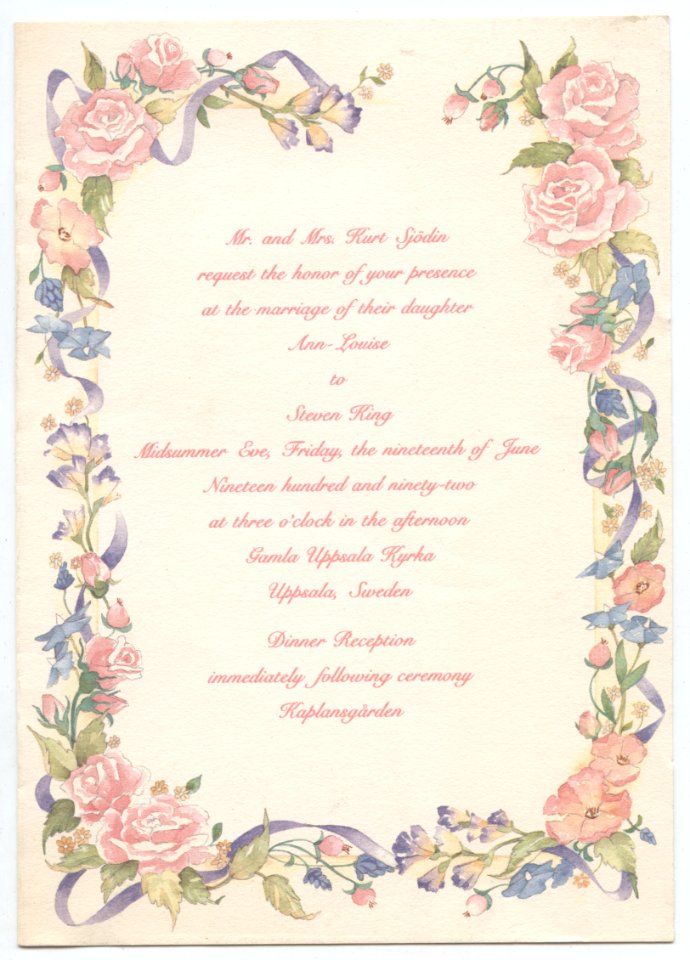 Mr. and Mrs. Kurt Sjödin
request the honor of your presence
at the marriage of their daughter
Ann-Louise
to
Steven King
Midsummer Eve, Friday, the nineteenth of June
Nineteen hundred and ninety-two
at three o'clock in the afternoon
Gamla Uppsala Kyrka
Uppsala, Sweden
Dinner Reception
immediately following ceremony
Kaplansgården